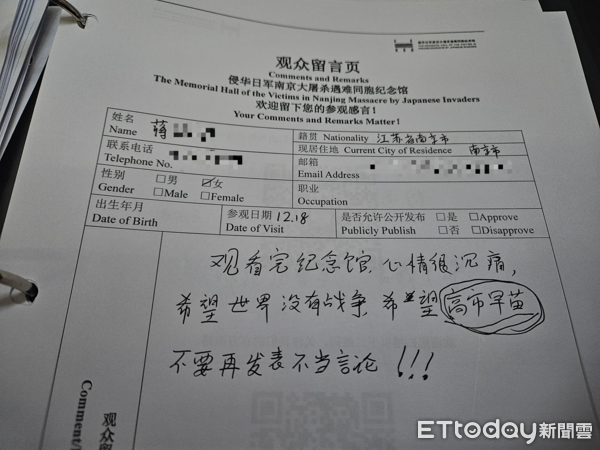 观众留言页
Comments and Remarks
侵华日军南京大屠杀遇难同胞纪念馆
The Memorial Hall of the Victims in Nanjing Massacre by Japanese Invaders
欢迎留下您的参观感言!
Your Comments and Remarks Matter!
姓名
Name 蒋
籍贯 Nationality 江苏省南京市
联系电话
Telephone No.
现居住地 Current City of Residence 南京市
邮箱
Email Address
性别 □男 ☑女
Gender □Male □Female
职业
Occupation
出生年月
Date of Birth
参观日期 12.18
Date of Visit
是否允许公开发布 □是 □Approve
Publicly Publish □否 □Disapprove
观看完纪念馆 心情很沉痛,
希望世界没有战争 希望 高市早苗
不要再发表不当言论!!!
观众留
Comment/
ETtoday新聞雲